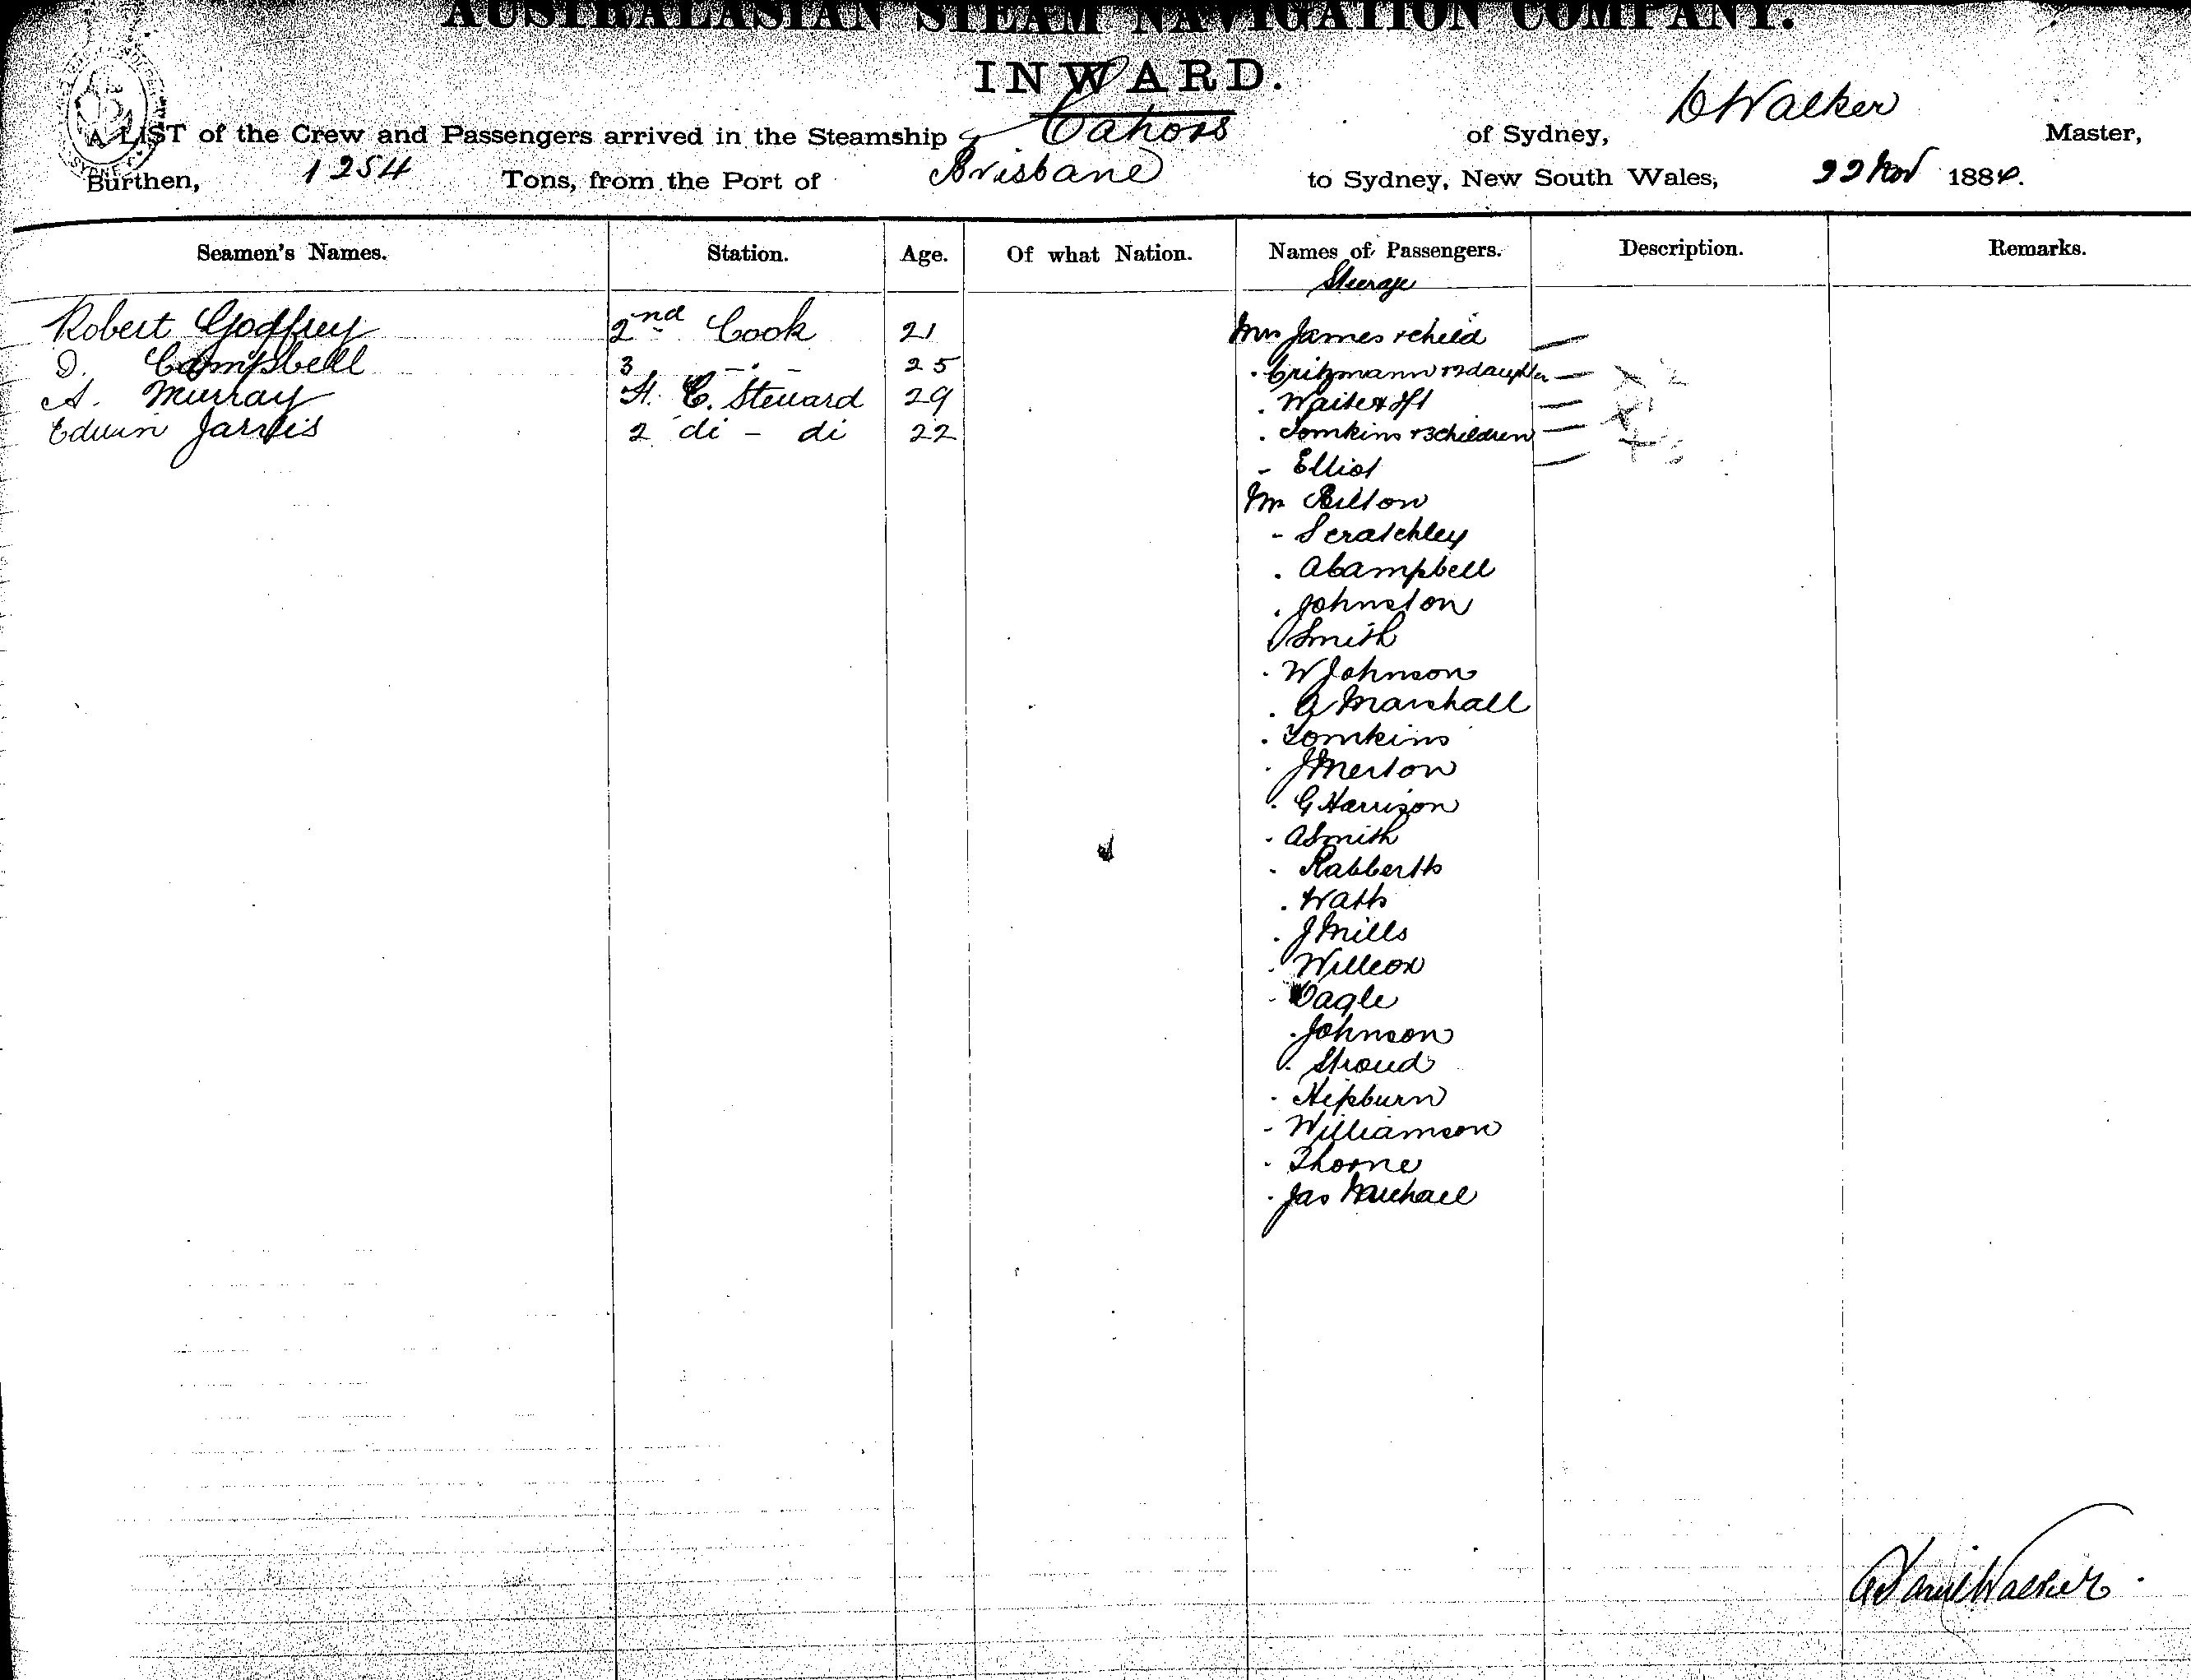 AUSTRALASIAN STEAM NAVIGATION COMPANY.
INWARD.
A LIST of the Crew and Passengers arrived in the Steamship Cahors of Sydney, C Walker Master,
Burthen, 1254 Tons, from the Port of Brisbane to Sydney, New South Wales, 22 Nov 1884.
Seamen's Names. Station. Age. Of what Nation. Names of Passengers. Description. Remarks.
Steerage
Robert Godfrey 2nd Cook 21 Mrs James + child
D. Campbell 3 - . - 25 . Critzmann + 2 daughter
A. Murray C. Steward 29 . Waite +
Edwin Jarvis 2 di - di 22 . Tomkins + 3 children
- Elliot
Mr Bilton
- Scratchley
. A Campbell
. Johnston
Smith
. W Johnson
. A Marshall
. Tomkins
. J Merton
. G Harrison
. A Smith
- Rabberts
. Watts
. J Mills
. Willcox
- Oagle
. Johnson
. Stroud
. Hepburn
- Williamson
. Thorne
. Jas
Walker